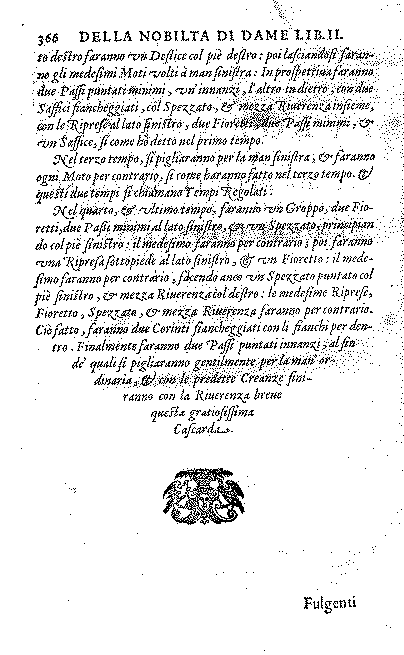 366 DELLA NOBILTA DI DAME LIB.II.
to destro faranno vn Destice col piè destro: poi lasciandosi faran-
no gli medesimi Moti volti à man sinistra: In prospettiua faranno
due Passi puntati minimi, vn' innanzi, l'altro in dietro, con due
Saffici fiancheggiati, col Spezzato, & mezza Riuerenza insieme,
con le Riprese al lato sinistro, due Fioretti, due Passi minimi, &
vn Saffice, sì come hò detto nel primo tempo.
Nel terzo tempo, si pigliaranno per la man sinistra, & faranno
ogni Moto per contrario, sì come haranno fatto nel terzo tempo. &
questi due tempi si chiamano Tempi Regolati.
Nel quarto, & vltimo tempo, faranno vn Groppo, due Fio-
retti, due Passi minimi al lato sinistro, & vn Spezzato, principian
do col piè sinistro: il medesimo faranno per contrario; poi faranno
vna Ripresa sottopiede al lato sinistro, & vn Fioretto: il mede-
simo faranno per contrario, facendo anco vn Spezzato puntato col
piè sinistro, & mezza Riuerenza col destro: le medesime Riprese,
Fioretto, Spezzato, & mezza Riuerenza faranno per contrario.
Ciò fatto, faranno due Corinti fiancheggiati con li fianchi per den-
tro. Finalmente faranno due Passi puntati innanzi, al fin
de' quali si pigliaranno gentilmente per la man or-
dinaria, & con le predette Creanze fini-
ranno con la Riuerenza breue
questa gratiosissima
Cascarda.
Fulgenti